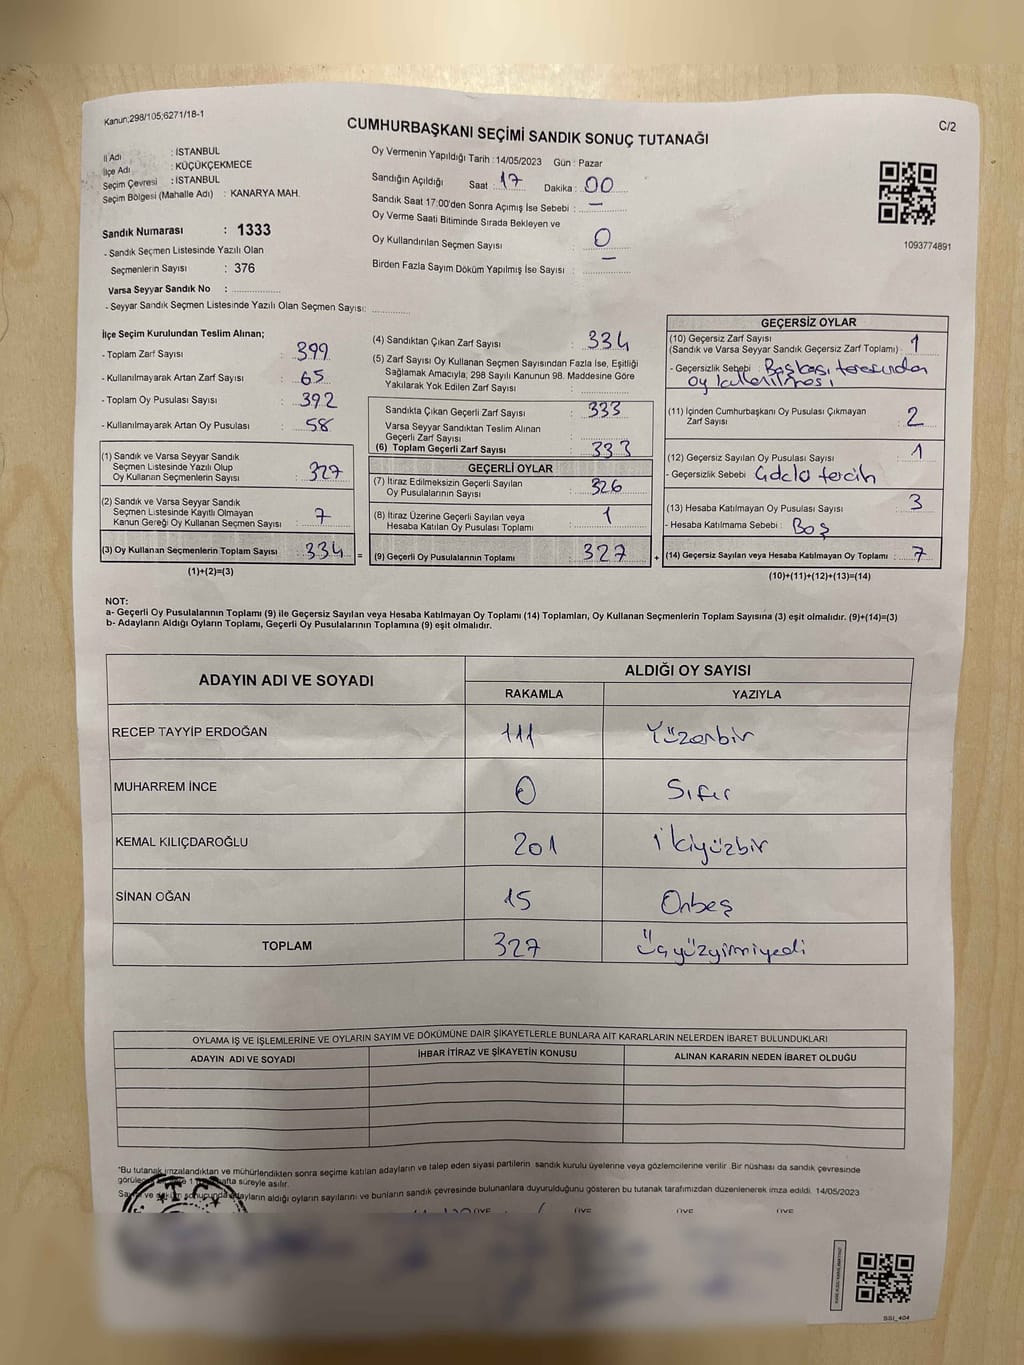 Kanun;298/105;6271/18-1
C/2
CUMHURBAŞKANI SEÇİMİ SANDIK SONUÇ TUTANAĞI
İl Adı : İSTANBUL
İlçe Adı : KÜÇÜKÇEKMECE
Seçim Çevresi : İSTANBUL
Seçim Bölgesi (Mahalle Adı) : KANARYA MAH.
Oy Vermenin Yapıldığı Tarih : 14/05/2023 Gün : Pazar
Sandığın Açıldığı Saat : 17 Dakika : 00
Sandık Saat 17:00'den Sonra Açımış İse Sebebi : —
Oy Verme Saati Bitiminde Sırada Bekleyen ve
Oy Kullandırılan Seçmen Sayısı : 0
Birden Fazla Sayım Döküm Yapılmış İse Sayısı : —
1093774891
Sandık Numarası : 1333
- Sandık Seçmen Listesinde Yazılı Olan
Seçmenlerin Sayısı : 376
Varsa Seyyar Sandık No :
- Seyyar Sandık Seçmen Listesinde Yazılı Olan Seçmen Sayısı:
İlçe Seçim Kurulundan Teslim Alınan;
- Toplam Zarf Sayısı : 399
- Kullanılmayarak Artan Zarf Sayısı : 65
- Toplam Oy Pusulası Sayısı : 392
- Kullanılmayarak Artan Oy Pusulası : 58
(1) Sandık ve Varsa Seyyar Sandık
Seçmen Listesinde Yazılı Olup
Oy Kullanan Seçmenlerin Sayısı : 327
(2) Sandık ve Varsa Seyyar Sandık
Seçmen Listesinde Kayıtlı Olmayan
Kanun Gereği Oy Kullanan Seçmen Sayısı : 7
(3) Oy Kullanan Seçmenlerin Toplam Sayısı : 334 =
(1)+(2)=(3)
(4) Sandıktan Çıkan Zarf Sayısı : 334
(5) Zarf Sayısı Oy Kullanan Seçmen Sayısından Fazla İse, Eşitliği
Sağlamak Amacıyla, 298 Sayılı Kanunun 98. Maddesine Göre
Yakılarak Yok Edilen Zarf Sayısı :
Sandıkta Çıkan Geçerli Zarf Sayısı : 333
Varsa Seyyar Sandıktan Teslim Alınan
Geçerli Zarf Sayısı :
(6) Toplam Geçerli Zarf Sayısı : 333
GEÇERLİ OYLAR
(7) İtiraz Edilmeksizin Geçerli Sayılan
Oy Pusulalarının Sayısı : 326
(8) İtiraz Üzerine Geçerli Sayılan veya
Hesaba Katılan Oy Pusulası Toplamı : 1
(9) Geçerli Oy Pusulalarının Toplamı : 327 +
GEÇERSİZ OYLAR
(10) Geçersiz Zarf Sayısı
(Sandık ve Varsa Seyyar Sandık Geçersiz Zarf Toplamı) : 1
- Geçersizlik Sebebi : Başkası tarafından
oy kullanılması
(11) İçinden Cumhurbaşkanı Oy Pusulası Çıkmayan
Zarf Sayısı : 2
(12) Geçersiz Sayılan Oy Pusulası Sayısı : 1
- Geçersizlik Sebebi : tercih
(13) Hesaba Katılmayan Oy Pusulası Sayısı : 3
- Hesaba Katılmama Sebebi : Boş
(14) Geçersiz Sayılan veya Hesaba Katılmayan Oy Toplamı : 7
(10)+(11)+(12)+(13)=(14)
NOT:
a- Geçerli Oy Pusulalarının Toplamı (9) ile Geçersiz Sayılan veya Hesaba Katılmayan Oy Toplamı (14) Toplamları, Oy Kullanan Seçmenlerin Toplam Sayısına (3) eşit olmalıdır. (9)+(14)=(3)
b- Adayların Aldığı Oyların Toplamı, Geçerli Oy Pusulalarının Toplamına (9) eşit olmalıdır.
ADAYIN ADI VE SOYADI
ALDIĞI OY SAYISI
RAKAMLA YAZIYLA
RECEP TAYYİP ERDOĞAN 111 Yüzonbir
MUHARREM İNCE 0 Sıfır
KEMAL KILIÇDAROĞLU 201 İkiyüzbir
SİNAN OĞAN 15 Onbeş
TOPLAM 327 Üçyüzyirmiyedi
OYLAMA İŞ VE İŞLEMLERİNE VE OYLARIN SAYIM VE DÖKÜMÜNE DAİR ŞİKAYETLERLE BUNLARA AİT KARARLARIN NELERDEN İBARET BULUNDUKLARI
ADAYIN ADI VE SOYADI İHBAR İTİRAZ VE ŞİKAYETİN KONUSU ALINAN KARARIN NEDEN İBARET OLDUĞU
*Bu tutanak imzalandıktan ve mühürlendikten sonra seçime katılan adayların ve talep eden siyasi partilerin sandık kurulu üyelerine veya gözlemcilerine verilir. Bir nüshası da sandık çevresinde
süreyle asılır.
sonucunda adayların aldığı oyların sayılarını ve bunların sandık çevresinde bulunanlara duyurulduğunu gösteren bu tutanak tarafımızdan düzenlenerek imza edildi. 14/05/2023
ÜYE ÜYE ÜYE ÜYE
SSI_404